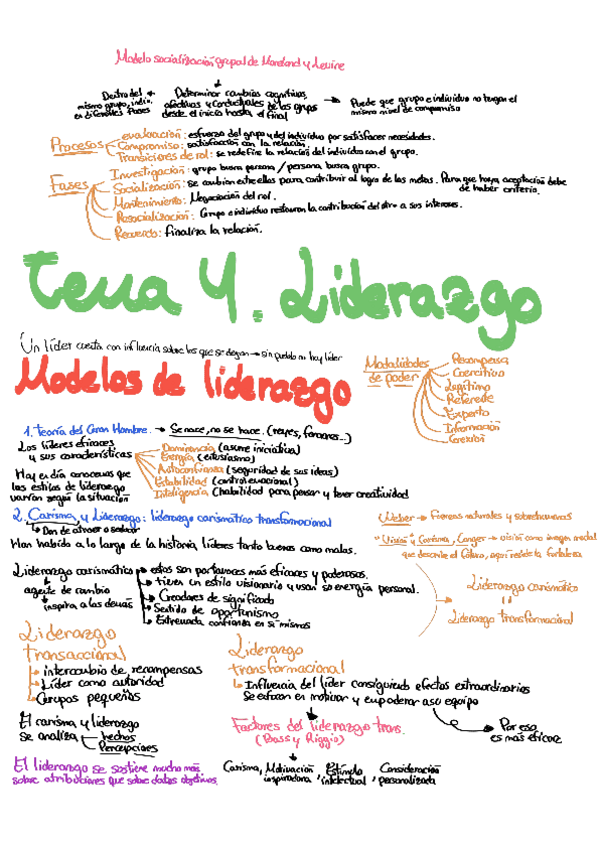 Modelo socialización grupal de Moreland y Levine
Dentro del mismo grupo, indiv. en diferentes fases
Determinar cambios cognitivos, afectivos y conductuales de los grupos desde el inicio hasta el final
Puede que grupo e individuo no tengan el mismo nivel de compromiso
Procesos
evaluación: esfuerzo del grupo y del individuo por satisfacer necesidades.
Compromiso: satisfacción con la relación.
Transiciones de rol: se redefine la relación del individuo con el grupo.
Fases
Investigación: grupo busca persona / persona busca grupo.
Socialización: se cambian entre ellos para contribuir al logro de las metas. Para que haya aceptación debe de haber criterio.
Mantenimiento: Negociación del rol.
Resocialización: Grupo e individuo restauran la contribución del otro a sus intereses.
Recuerdo: finaliza la relación.
Tema 4. Liderazgo
Un líder cuenta con influencia sobre los que se dejan → sin pueblo no hay líder
Modelos de liderazgo
Modalidades de poder
Recompensa
Coercitivo
Legítimo
Referente
Experto
Información
Conexión
1. Teoría del Gran Hombre. → Se nace, no se hace. (reyes, faraones...)
Los líderes eficaces y sus características
Dominancia (asume iniciativa)
Energía (entusiasmo)
Autoconfianza (seguridad de sus ideas)
Estabilidad (control emocional)
Inteligencia (habilidad para pensar y tener creatividad
Hoy en día conocemos que los estilos de liderazgo varían según la situación
2. Carisma, y Liderazgo: liderazgo carismático transformacional
Don de atraer o seducir
Han habido a lo largo de la historia, líderes tanto buenos como malos.
Weber → Fuerzas naturales y sobrehumanas
"Visión y Carisma, Conger → visión como imagen modal que describe el futuro, aquí reside la fortaleza
Liderazgo carismático
agente de cambio
inspira a los demás
estos son portavoces más eficaces y poderosos.
tienen un estilo visionario y usan su energía personal.
Creadores de significado
Sentido de oportunismo
Extremada confianza en sí mismos
Liderazgo carismático
Liderazgo transformacional
Liderazgo transaccional
intercambio de recompensas
Líder como autoridad
Grupos pequeños
Liderazgo transformacional
Influencia del líder consiguiendo efectos extraordinarios
Se enfocan en motivar y empoderar a su equipo
Por eso es más eficaz
El carisma y liderazgo se analiza
hechos
Percepciones
Factores del liderazgo trans. (Bass y Riggio)
El liderazgo se sostiene mucho más sobre atribuciones que sobre datos objetivos.
Carisma, Motivación inspiradora, Estímulo intelectual, Consideración personalizada